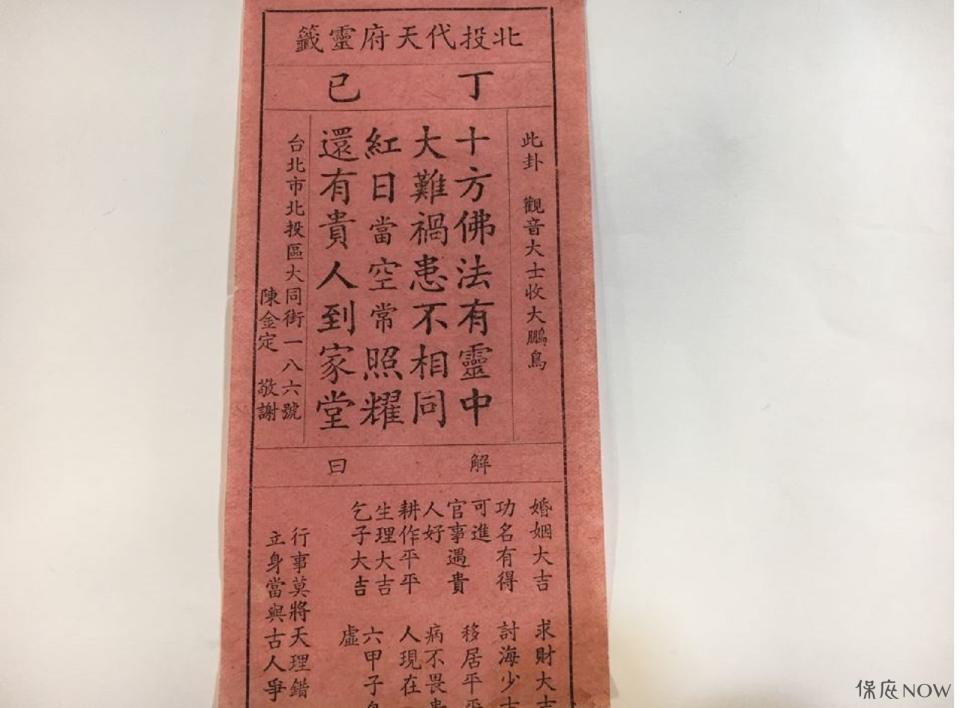 北投代天府靈籤
丁巳
此卦 觀音大士收大鵬鳥
十方佛法有靈中
大難禍患不相同
紅日當空常照耀
還有貴人到家堂
台北市北投區大同街一八六號
陳金定 敬謝
解曰
婚姻大吉
功名有得
可進
官事遇貴
人好
耕作平平
生理大吉
乞子大吉
求財大吉
討海少
移居平平
病不畏
人現在
六甲子
虛
行事莫將天理錯
立身當與古人爭
保庇NOW